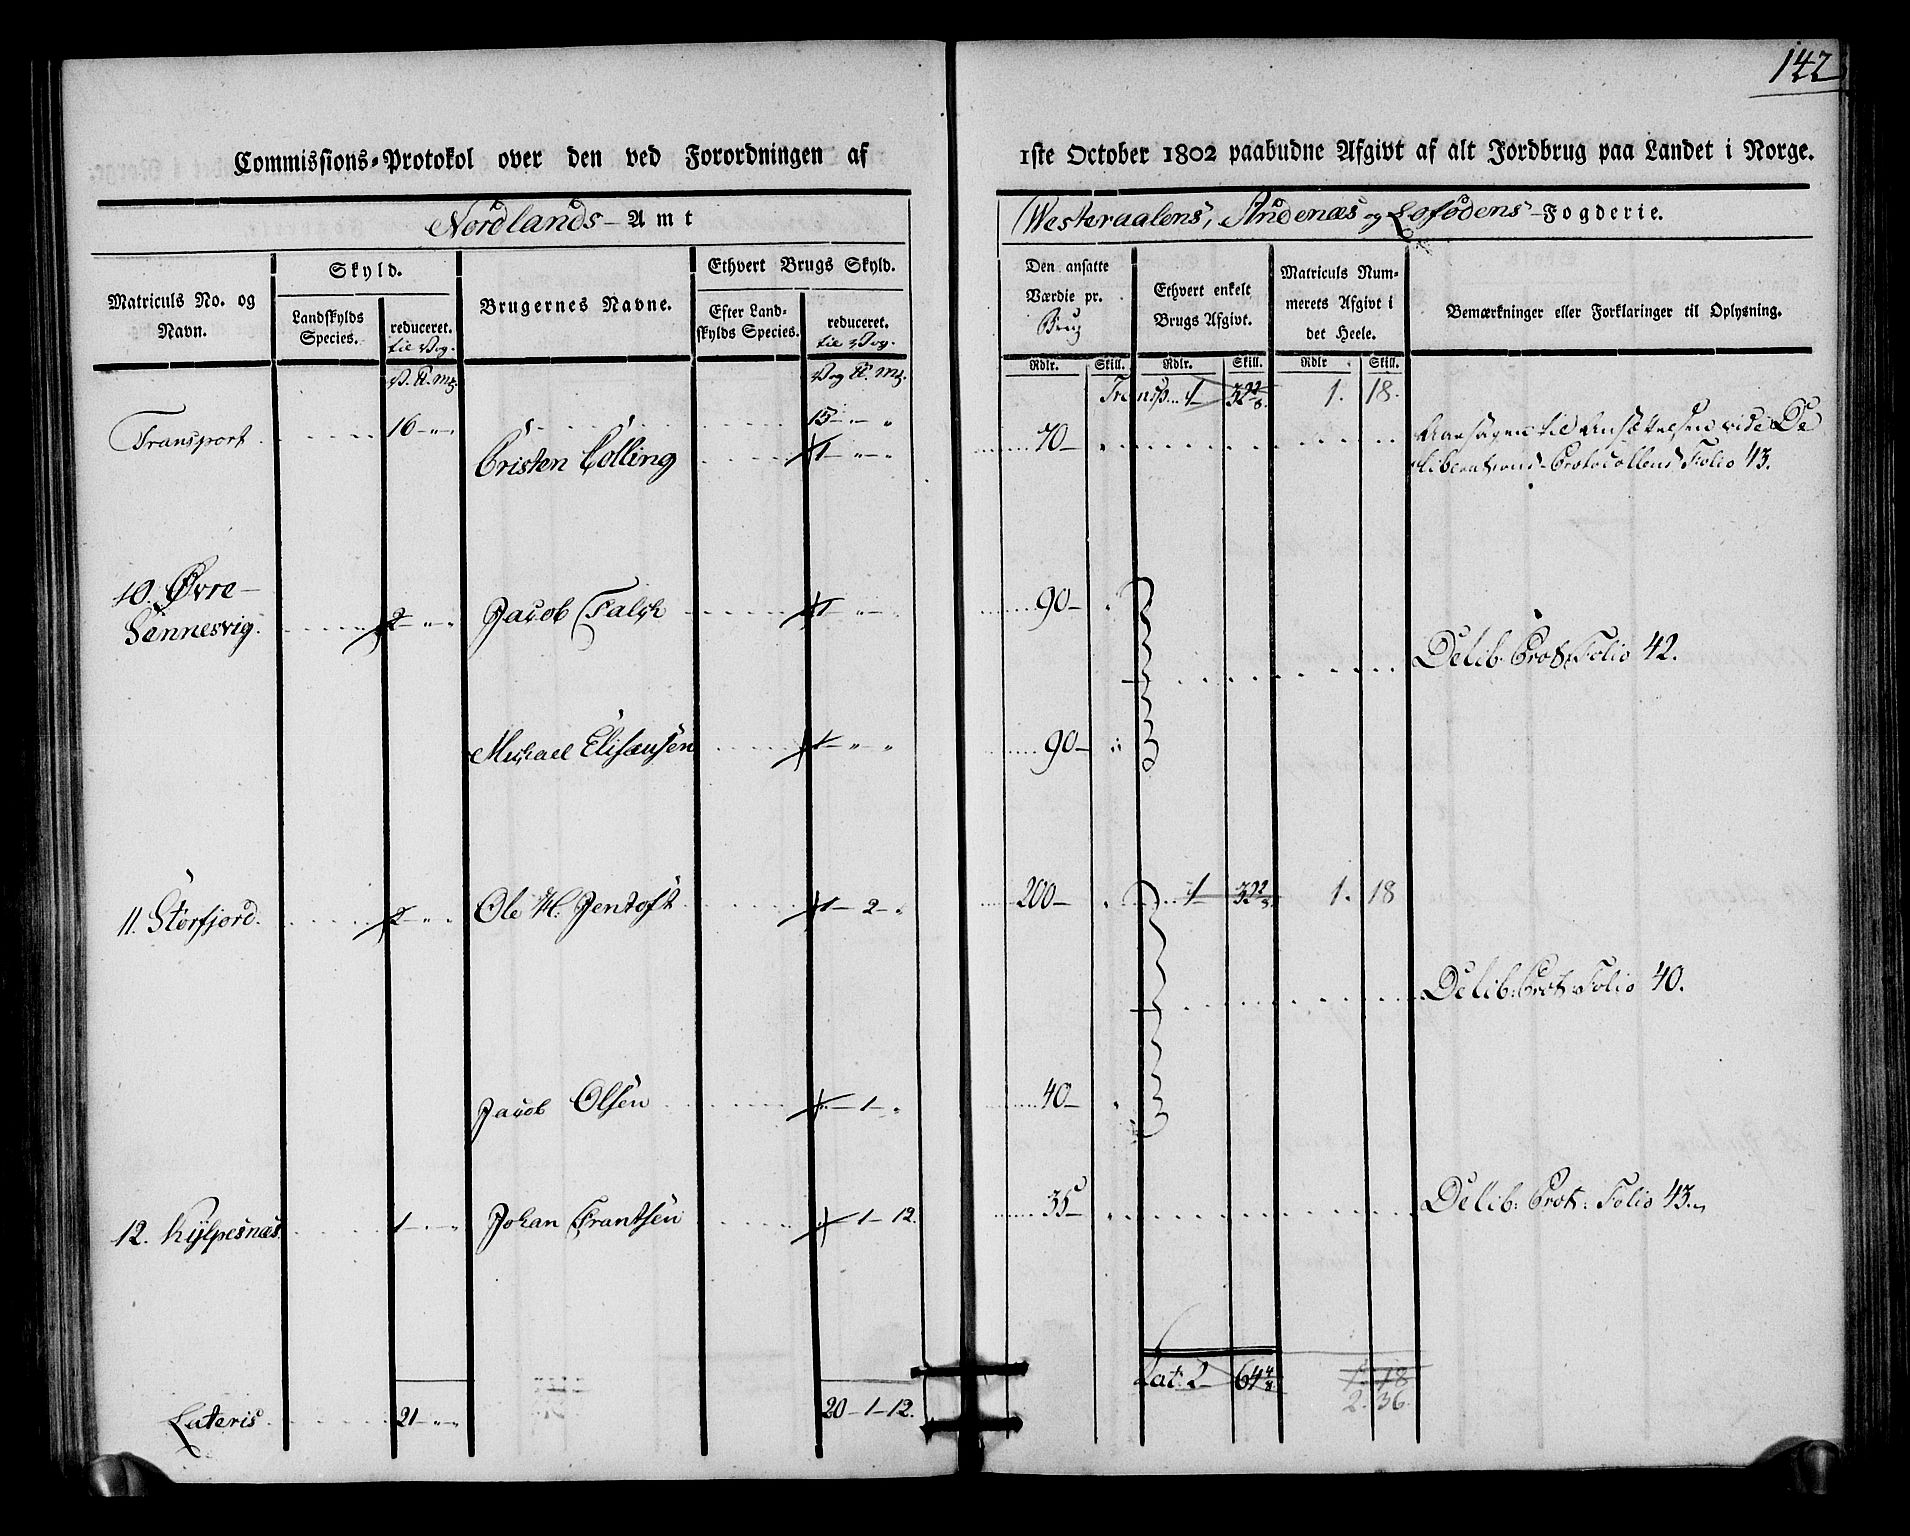 142
Commissions-Protokol over den ved Forordningen af 1ste October 1802 paabudne Afgivt af alt Jordbrug paa Landet i Norge.
Nordlands-Amt
Westeraalens, Andenæs og Lofodens-Fogderie.
Matriculs No. og Navn.
Skyld.
Landskylds Species.
reduceret. til Vog.
Brugernes Navne.
Ethvert Brugs Skyld.
Efter Landskylds Species.
reduceret. til Vog.
Den ansatte Værdie pr. Brug
Ethvert enkelt Brugs Afgivt.
Matriculs Nummerets Afgivt i det Heele.
Bemærkninger eller Forklaringer til Oplysning.
V. ℔. mk.
Vog ℔. mk.
Rdlr. Skill. Rdlr. Skill. Rdlr. Skill.
Transp. 1 1. 18.
Transport 16 - " - " 15 - " - "
Cristen Colling 1 - " - " 70 - "
Aarsagen til Ansættelsen vide De
liberations-Protocollens Folio 43.
10. Øvre-
Sennesvig. 2 - " - " Jacob Falch 1 - " - " 90 - "
Delib. Prot: Folio 42.
Michael Elisæusen 1 - " - " 90 - "
11. Storfjord. 2 - " - " Ole H. Jentoft 1 - 2 - " 200 - " 1 1. 18
Delib: Prot: Folio 40.
Jacob Olsen " - 1 - " 40 - "
12. Kylpesnæs 1 - " - " Johan Frantsen " - 1 - 12. 35 -
Delib: Prot: Folio 43.
Lat: 2 64 4/8 1. 18
2. 36.
Lateris 21 - " - " 20 - 1 - 12.